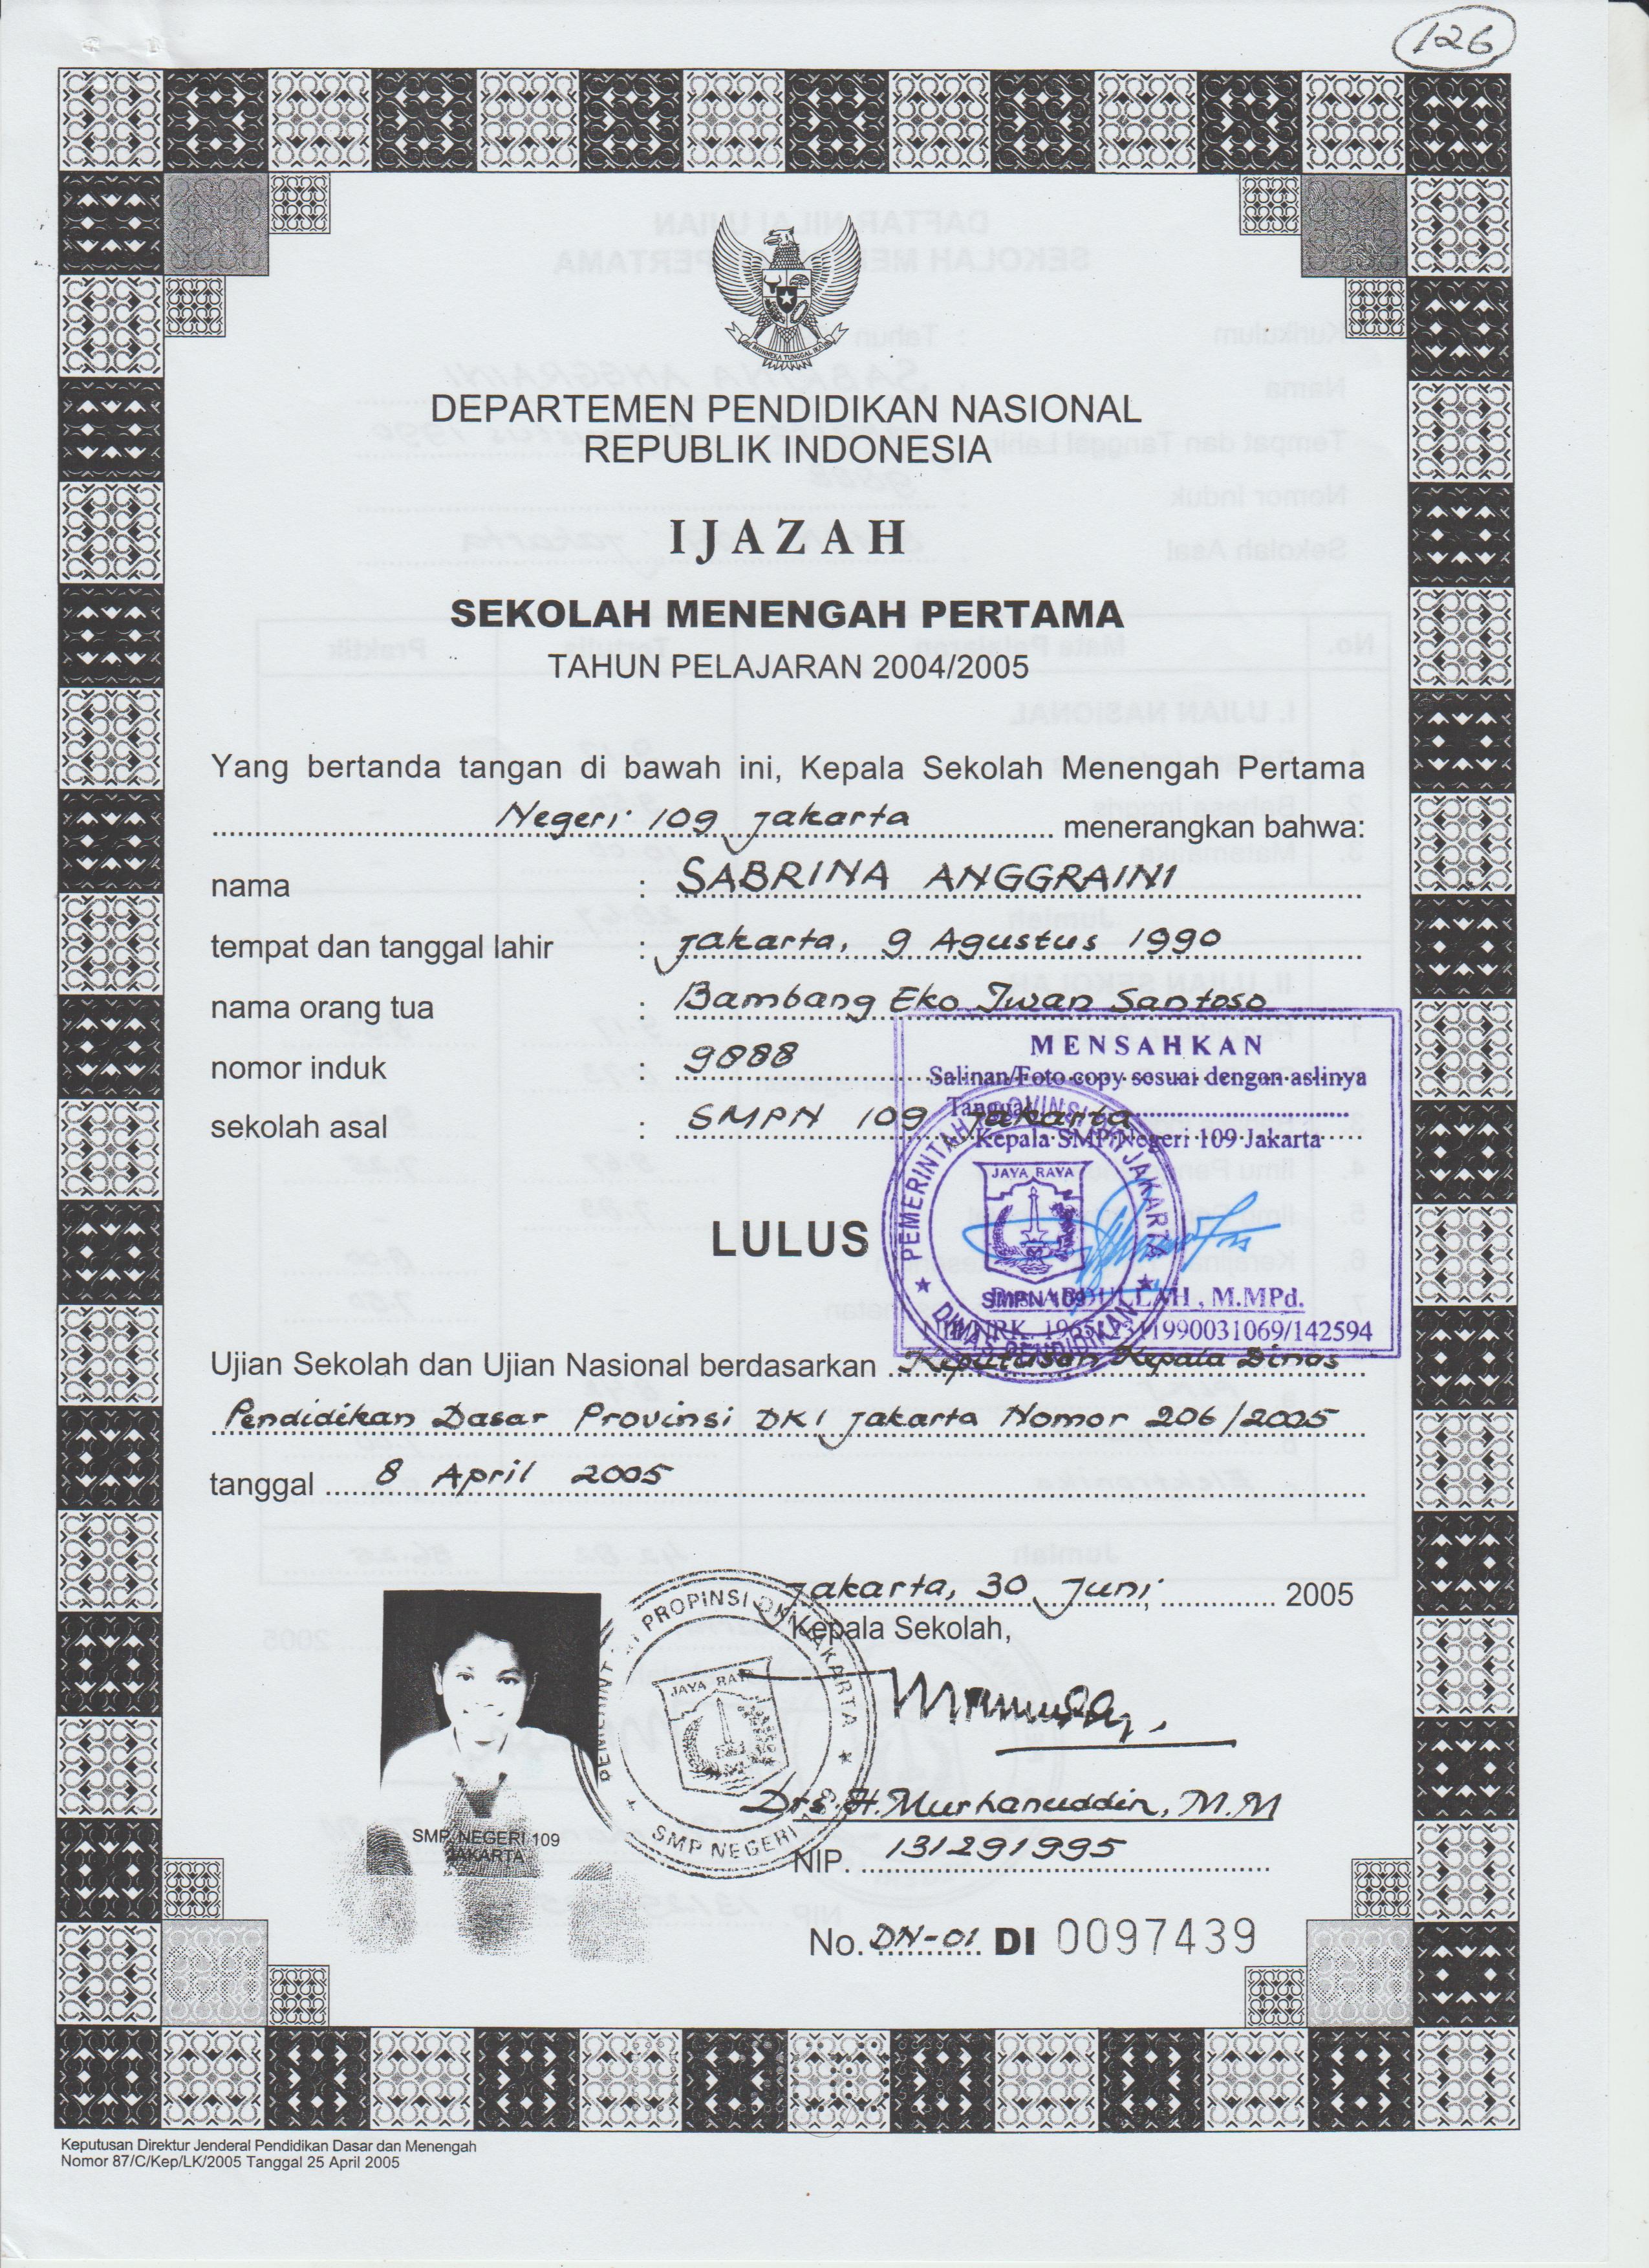 126
BHINNEKA TUNGGAL IKA
DEPARTEMEN PENDIDIKAN NASIONAL
REPUBLIK INDONESIA
IJAZAH
SEKOLAH MENENGAH PERTAMA
TAHUN PELAJARAN 2004/2005
Yang bertanda tangan di bawah ini, Kepala Sekolah Menengah Pertama
Negeri 109 Jakarta menerangkan bahwa:
nama : SABRINA ANGGRAINI
tempat dan tanggal lahir : Jakarta, 9 Agustus 1990
nama orang tua : Bambang Eko Iwan Santoso
nomor induk : 9888
sekolah asal : SMPN 109 Jakarta
MENSAHKAN
Salinan/Foto copy sesuai dengan aslinya
Tanggal
Kepala SMP Negeri 109 Jakarta
PEMERINTAH PROVINSI DKI JAKARTA
JAYA RAYA
SMPN 109
DINAS PENDIDIKAN
ABDULLAH, M.MPd.
NIP/NRK. 1990031069/142594
LULUS
Ujian Sekolah dan Ujian Nasional berdasarkan Keputusan Kepala Dinas
Pendidikan Dasar Provinsi DKI Jakarta Nomor 206/2005
tanggal 8 April 2005
Jakarta, 30 Juni, 2005
Kepala Sekolah,
PROPINSI DKI JAKARTA
JAYA RAYA
SMP NEGERI
Drs. H. Murhanuddin, M.M
NIP. 131291995
SMP NEGERI 109
JAKARTA
No. DN-01 DI 0097439
Keputusan Direktur Jenderal Pendidikan Dasar dan Menengah
Nomor 87/C/Kep/LK/2005 Tanggal 25 April 2005